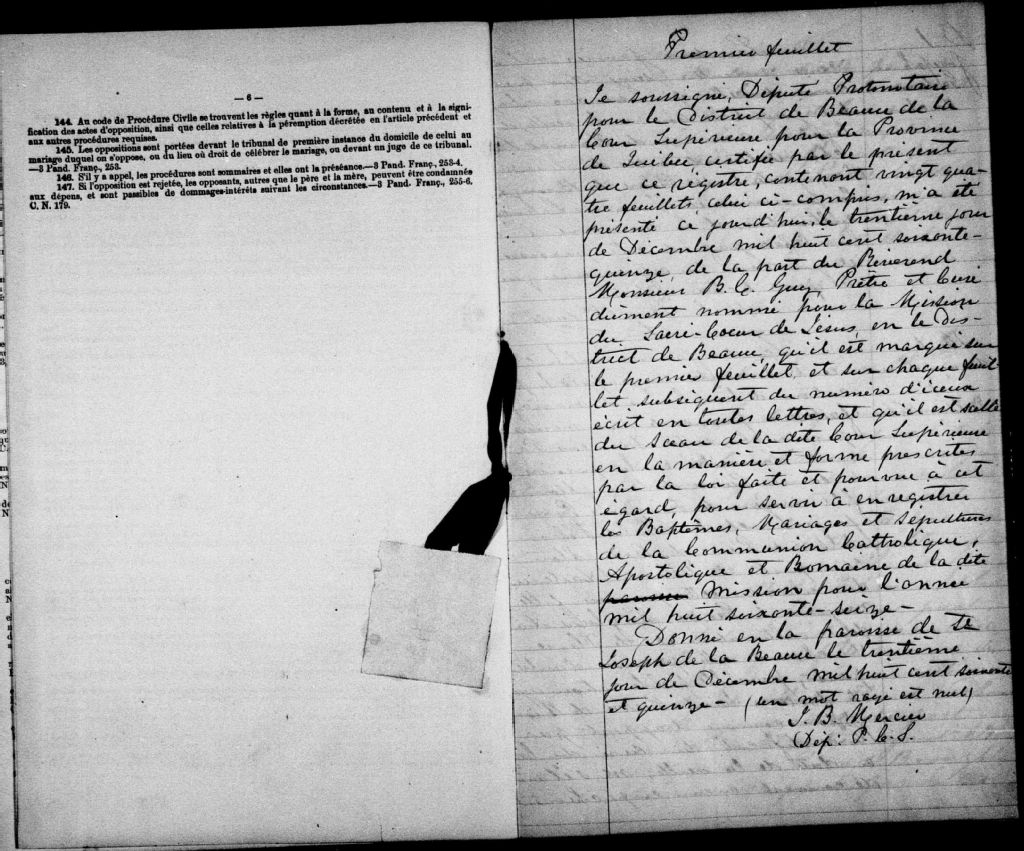 — 6 —
144. Au code de Procédure Civile se trouvent les règles quant à la forme, au contenu et à la signi-
fication des actes d'opposition, ainsi que celles relatives à la péremption décrétée en l'article précédent et
aux autres procédures requises.
145. Les oppositions sont portées devant le tribunal de première instance du domicile de celui au
mariage duquel on s'oppose, ou du lieu où droit de célébrer le mariage, ou devant un juge de ce tribunal.
—3 Pand. Franç., 253.
146. S'il y a appel, les procédures sont sommaires et elles ont la préséance.—3 Pand. Franç., 253-4.
147. Si l'opposition est rejetée, les opposants, autres que le père et la mère, peuvent être condamnés
aux dépens, et sont passibles de dommages-intérêts suivant les circonstances.—3 Pand. Franç., 255-6.
C. N. 179.
Premier feuillet
Je soussigné, Député Protonotaire
pour le District de Beauce de la
Cour Supérieure pour la Province
de Québec certifie par le présent
que ce régistre, contenant vingt qua-
tre feuillets, celui ci-compris, m'a été
présenté ce jourd'hui, le trentième jour
de Décembre mil huit cent soixante-
quinze, de la part du Révérend
Monsieur B. C. Guy, Prêtre et Curé
dûement nommé pour la Mission
du Sacré-Coeur de Jésus, en le Dis-
trict de Beauce, qu'il est marqué sur
le premier feuillet, et sur chaque feuil-
let subséquent du numéro d'iceux
écrit en toutes lettres, et qu'il est scellé
du Sceau de la dite Cour Supérieure
en la manière et forme prescrites
par la loi faite et pourvue à cet
égard, pour servir à enregistrer
les Baptêmes, Mariages et Sépultures
de la Communion Catholique,
Apostolique et Romaine de la dite
paroisse Mission pour l'année
mil huit soixante-seize -
Donné en la paroisse de St
Joseph de la Beauce le trentième
jour de Décembre mil huit cent soixante
et quinze - (un mot rayé est nul)
J. B. Mercier
Dép: P. C. S.